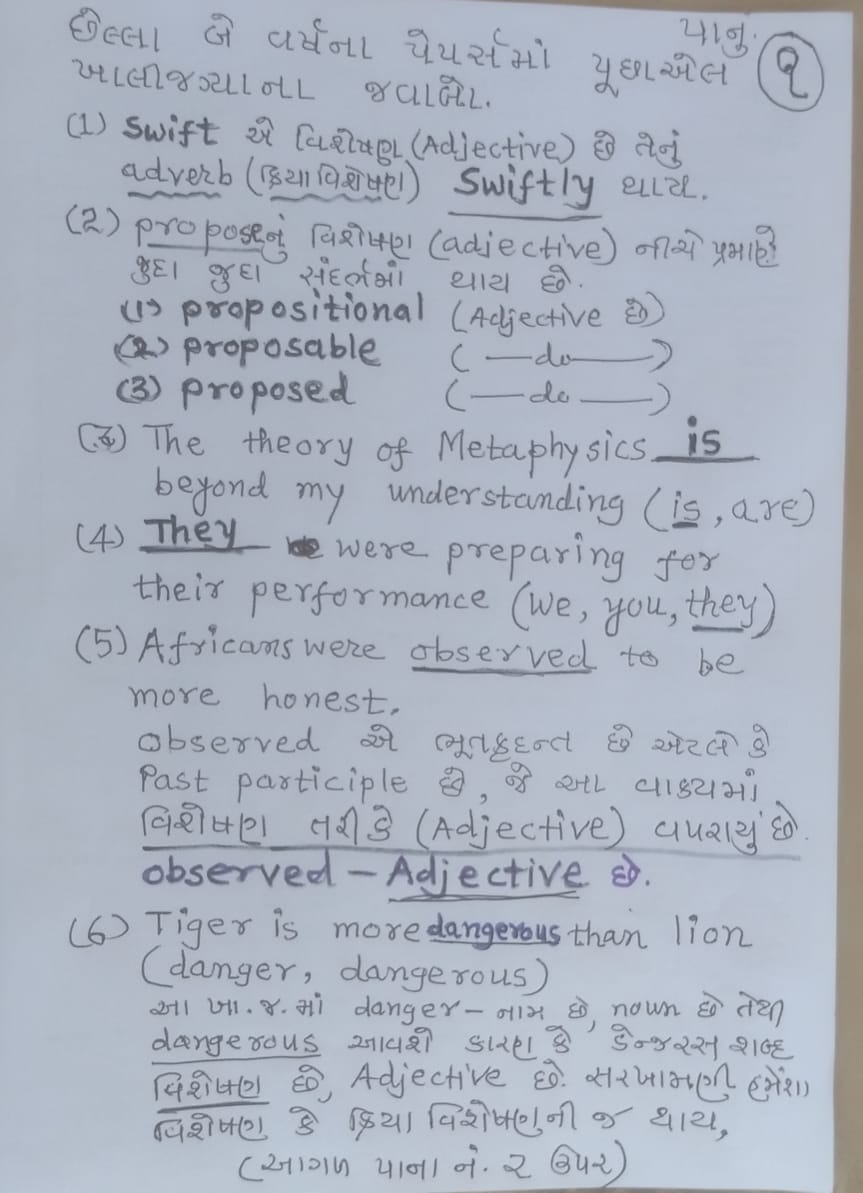 છેલ્લા બે વર્ષના પેપર્સમાં પૂછાએલ પાનું ૧
ખાલીજગ્યાના જવાબો.
(1) Swift એ વિશેષણ (Adjective) છે તેનું
adverb (ક્રિયાવિશેષણ) Swiftly થાય.
(2) proposeનું વિશેષણ (adjective) નીચે પ્રમાણે
જુદા જુદા સંદર્ભમાં થાય છે.
(1) propositional (Adjective છે)
(2) proposable (—do—)
(3) proposed (—do—)
(3) The theory of Metaphysics is
beyond my understanding (is, are)
(4) They were preparing for
their performance (we, you, they)
(5) Africans were observed to be
more honest.
observed એ ભૂતકૃદન્ત છે એટલે કે
Past participle છે, જે આ વાક્યમાં
વિશેષણ તરીકે (Adjective) વપરાયું છે.
observed – Adjective છે.
(6) Tiger is more dangerous than lion
(danger, dangerous)
આ ખા. જ. માં danger – નામ છે, noun છે તેથી
dangerous આવશે કારણ કે ડેન્જરસ શબ્દ
વિશેષણ છે, Adjective છે. સરખામણી હમેંશા
વિશેષણ કે ક્રિયાવિશેષણની જ થાય,
(આગળ પાના નં. ૨ ઉપર)